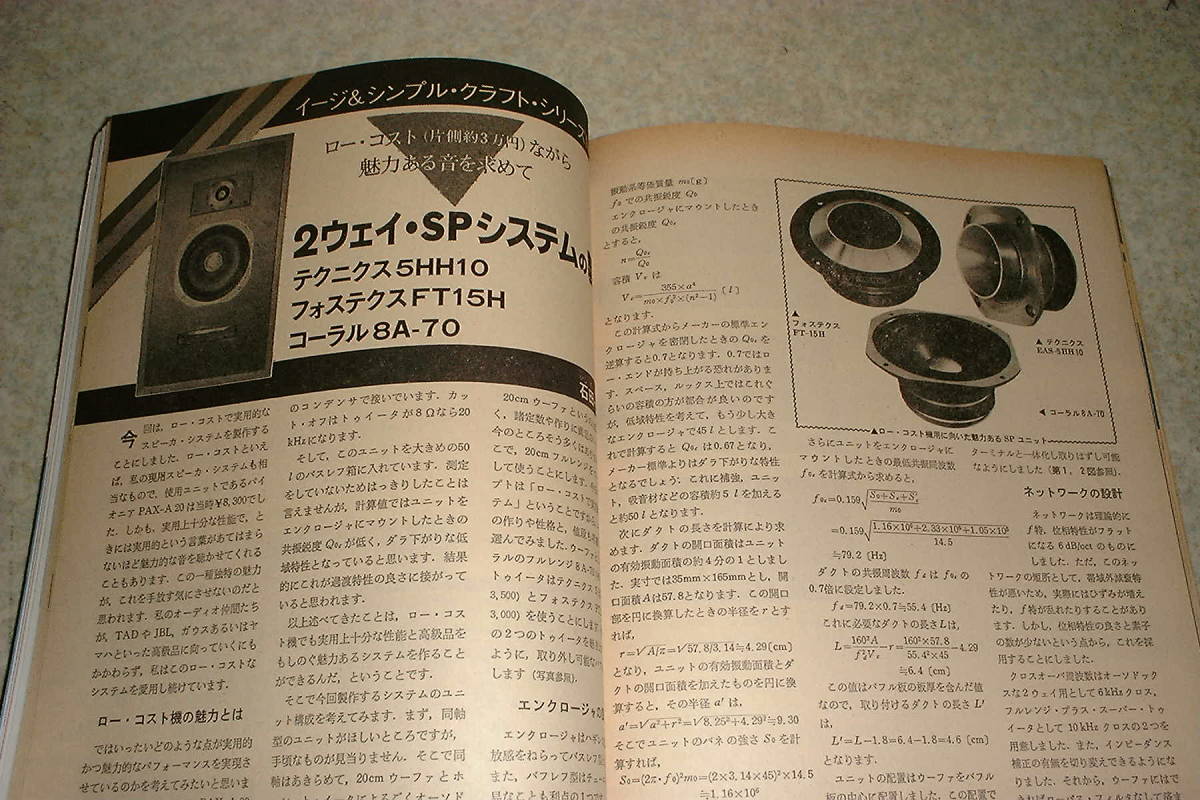 イージ&シンプル・クラフト・シリーズ
ロー・コスト(片側約3万円)ながら
魅力ある音を求めて
2ウェイ・SPシステムの
テクニクス5HH10
フォステクスFT15H
コーラル8A-70
今回は,ロー・コストで実用的な
スピーカ・システムを製作する
ことにしました.ロー・コストといえ
ば,私の現用スピーカ・システムも相
当なもので,使用ユニットであるパイ
オニアPAX-A20は当時¥8,300でし
た.しかも,実用上十分な性能で,と
きには実用的という言葉があてはまら
ないほど魅力的な音を聴かせてくれる
こともあります.この一種独特の魅力
が,これを手放す気にさせないのだと
思われます.私のオーディオ仲間たち
が,TADやJBL,ガウスあるいはヤ
マハといった高級品に向っていくにも
かかわらず,私はこのロー・コストな
システムを愛用し続けています.
ロー・コスト機の魅力とは
ではいったいどのような点が実用的
かつ魅力的なパフォーマンスを実現さ
せているのかを考えてみたいと思いま
のコンデンサで接いでいます.カッ
ト・オフはトゥイータが8Ωなら20
kHzになります.
そして,このユニットを大きめの50
lのバスレフ箱に入れています.測定
をしていないためはっきりしたことは
言えませんが,計算値ではユニットを
エンクロージャにマウントしたときの
共振鋭度Q₀ₑが低く,ダラ下がりな低
域特性となっていると思います.結果
的にこれが過渡特性の良さに接がって
いると思われます.
以上述べてきたことは,ロー・コス
ト機でも実用上十分な性能と高級品を
もしのぐ魅力あるシステムを作ること
ができるんだ,ということです.
そこで今回製作するシステムのユニ
ット構成を考えてみます.まず,同軸
型のユニットがほしいところですが,
手頃なものが見当りません.そこで同
軸はあきらめて,20cmウーファとホ
20cmウーファという
く,諸定数や作りに
今のところそう多くは
こで,20cmフルレンジを
して使うことにします.
プトは「ロー・コストで実
テム」ということですから,
の作りや性格と,値段も
選んでみました.ウーファ
ラルのフルレンジ8A-70
トゥイータはテクニクス5
3,500)とフォステクス
3,000)を使うことにしま
の2つのトゥイータを
ように,取り外し可能な
します(写真参照).
エンクロージャの
エンクロージャはハ
放感をねらってバスレフ
また,バスレフ型はチュー
振動系等価質量 m₀[g]
f₀での共振鋭度 Q₀
エンクロージャにマウントしたとき
の共振鋭度 Q₀ₑ
とすると,
n=Q₀ₑ/Q₀
容積 Vₑ は
Vₑ=355×a⁴/m₀×f₀²×(n²−1) [l]
となります.
この計算式からメーカーの標準エン
クロージャを密閉したときのQ₀ₑを
逆算すると0.7となります.0.7ではロ
ー・エンドが持ち上がる恐れがありま
す.スペース,ルックス上ではこれぐ
らいの容積の方が都合が良いのです
が,低域特性を考えて,もう少し大き
なエンクロージャで45lとします.こ
れで計算すると Q₀ₑ は0.67となり,
メーカー標準よりはダラ下がりな特性
となるでしょう.これに補強,ユニッ
ト,吸音材などの容積約5lを加える
と約50lとなります.
次にダクトの長さを計算により求
めます.ダクトの開口面積はユニット
の有効振動面積の約4分の1としまし
た.実寸では35mm×165mmとし,開
口面積Aは57.8となります.この開口
部を円に換算したときの半径をrとす
れば,
r=√A/π=√57.8/3.14≒4.29(cm)
となり,ユニットの有効振動面積とダ
クトの開口面積を加えたものを円に換
算すると,その半径 a′ は,
a′=√a²+r²=√8.25²+4.29²≒9.30
そこでユニットのバネの強さ S₀ を計
算すれば,
S₀=(2π・f₀)²m₀=(2×3.14×45)²×14.5
≒1.16×10⁶
▲フォステクス
FT-15H
▲テクニクス
EAS-5HH10
◀コーラル8A-70
▲ロー・コスト機用に向いた魅力あるSPユニット
さらにユニットをエンクロージャに
マウントしたときの最低共振周波数
f₀ₑを計算すると,
f₀ₑ=0.159√S₀+Sₑ+Sₛ/m₀
=0.159√1.16×10⁶+2.33×10⁶+1.05×10⁵/14.5
≒79.2 (Hz)
ダクトの共振周波数 f_d は f₀ₑ の
0.7倍に設定しました.
f_d=79.2×0.7≒55.4 (Hz)
これに必要なダクトの長さLは,
L=160²A/f_d²Vₑ−r=160²×57.8/55.4²×45−4.29
≒6.4 (cm)
この値はバフル板の板厚を含んだ値
なので,取り付けるダクトの長さL′
は,
L′=L−1.8=6.4−1.8=4.6 (cm)
となります.
ユニットの配置はウーファをバフル
板の中心に配置しました.この配置で
ターミナルと一体化し取りはずし可能
なようにしました(第1,2図参照).
ネットワークの設計
ネットワークは理論的に
f特,位相特性がフラット
になる6dB/octのものに
しました.ただ,このネッ
トワークの短所として,帯域外減衰特
性が悪いため,実際にはひずみが増え
たり,f特が乱れたりすることがあり
ます.しかし,位相特性の良さと素子
の数が少ないという点から,これを採
用することにしました.
クロスオーバ周波数はオーソドック
スな2ウェイ用として6kHzクロス,
フルレンジ・プラス・スーパー・トゥ
イータとして10kHzクロスの2つを
用意しました.また,インピーダンス
補正の有無を切り変えできるようにな
りました.それから,ウーファにはで